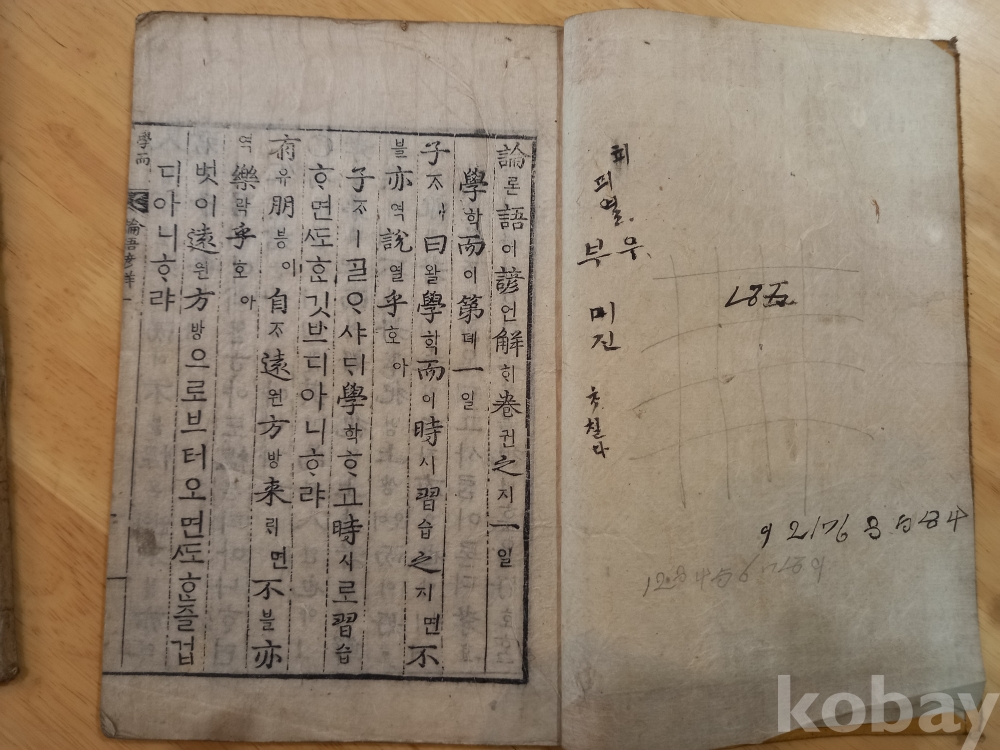 피열.
부우.
미진
論론語어諺언解ᄒᆡ卷권之지一일
學학而이第뎨一일
子ᄌᆞㅣ曰왈學학而이時시習습之지면不
블亦역說열乎호아
子ᄌᆞㅣᄀᆞᆯᄋᆞ샤ᄃᆡ學학ᄒᆞ고時시로習습
ᄒᆞ면ᄯᅩᄒᆞᆫ깃브디아니ᄒᆞ랴
有유朋붕이自ᄌᆞ遠원方방來ᄅᆡ면不블亦
역樂락乎호아
벗이遠원方방으로브터오면ᄯᅩᄒᆞᆫ즐겁
디아니ᄒᆞ랴
學而
kobay